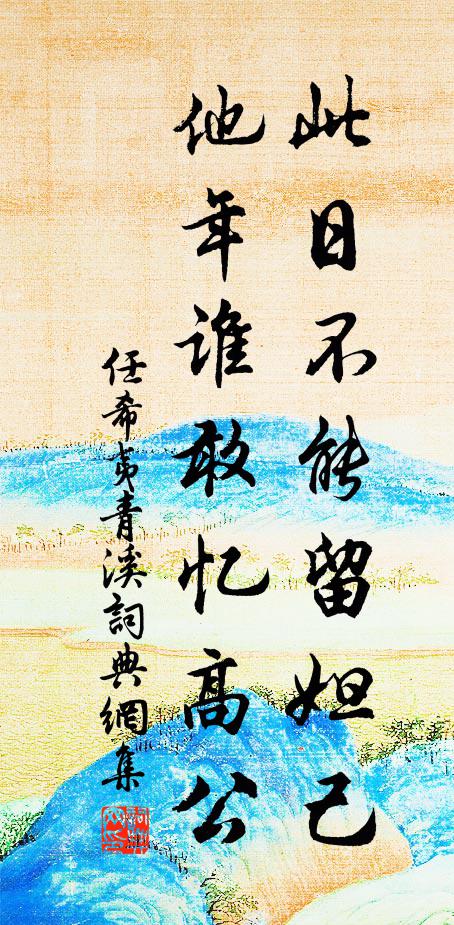 此日不能留妲己
他年谁敢忆高公
任希夷青溪詞典網集